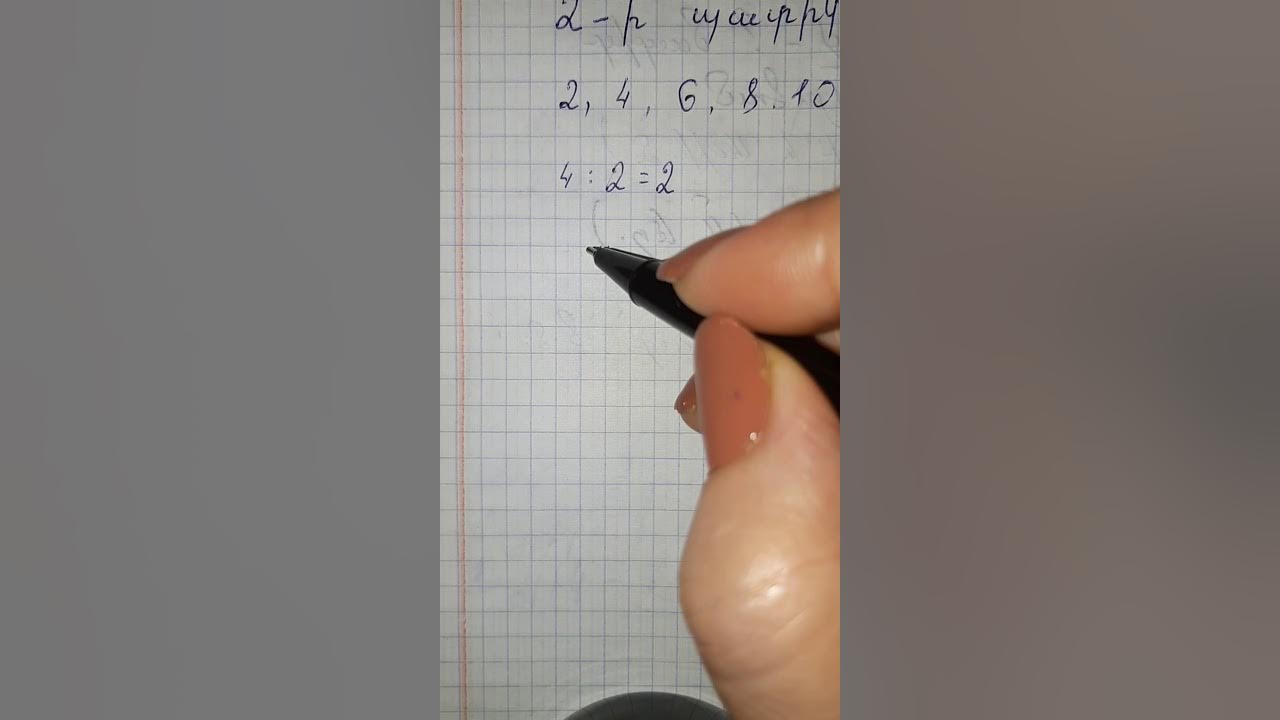 2-ի
2, 4, 6, 8. 10
4 : 2 = 2